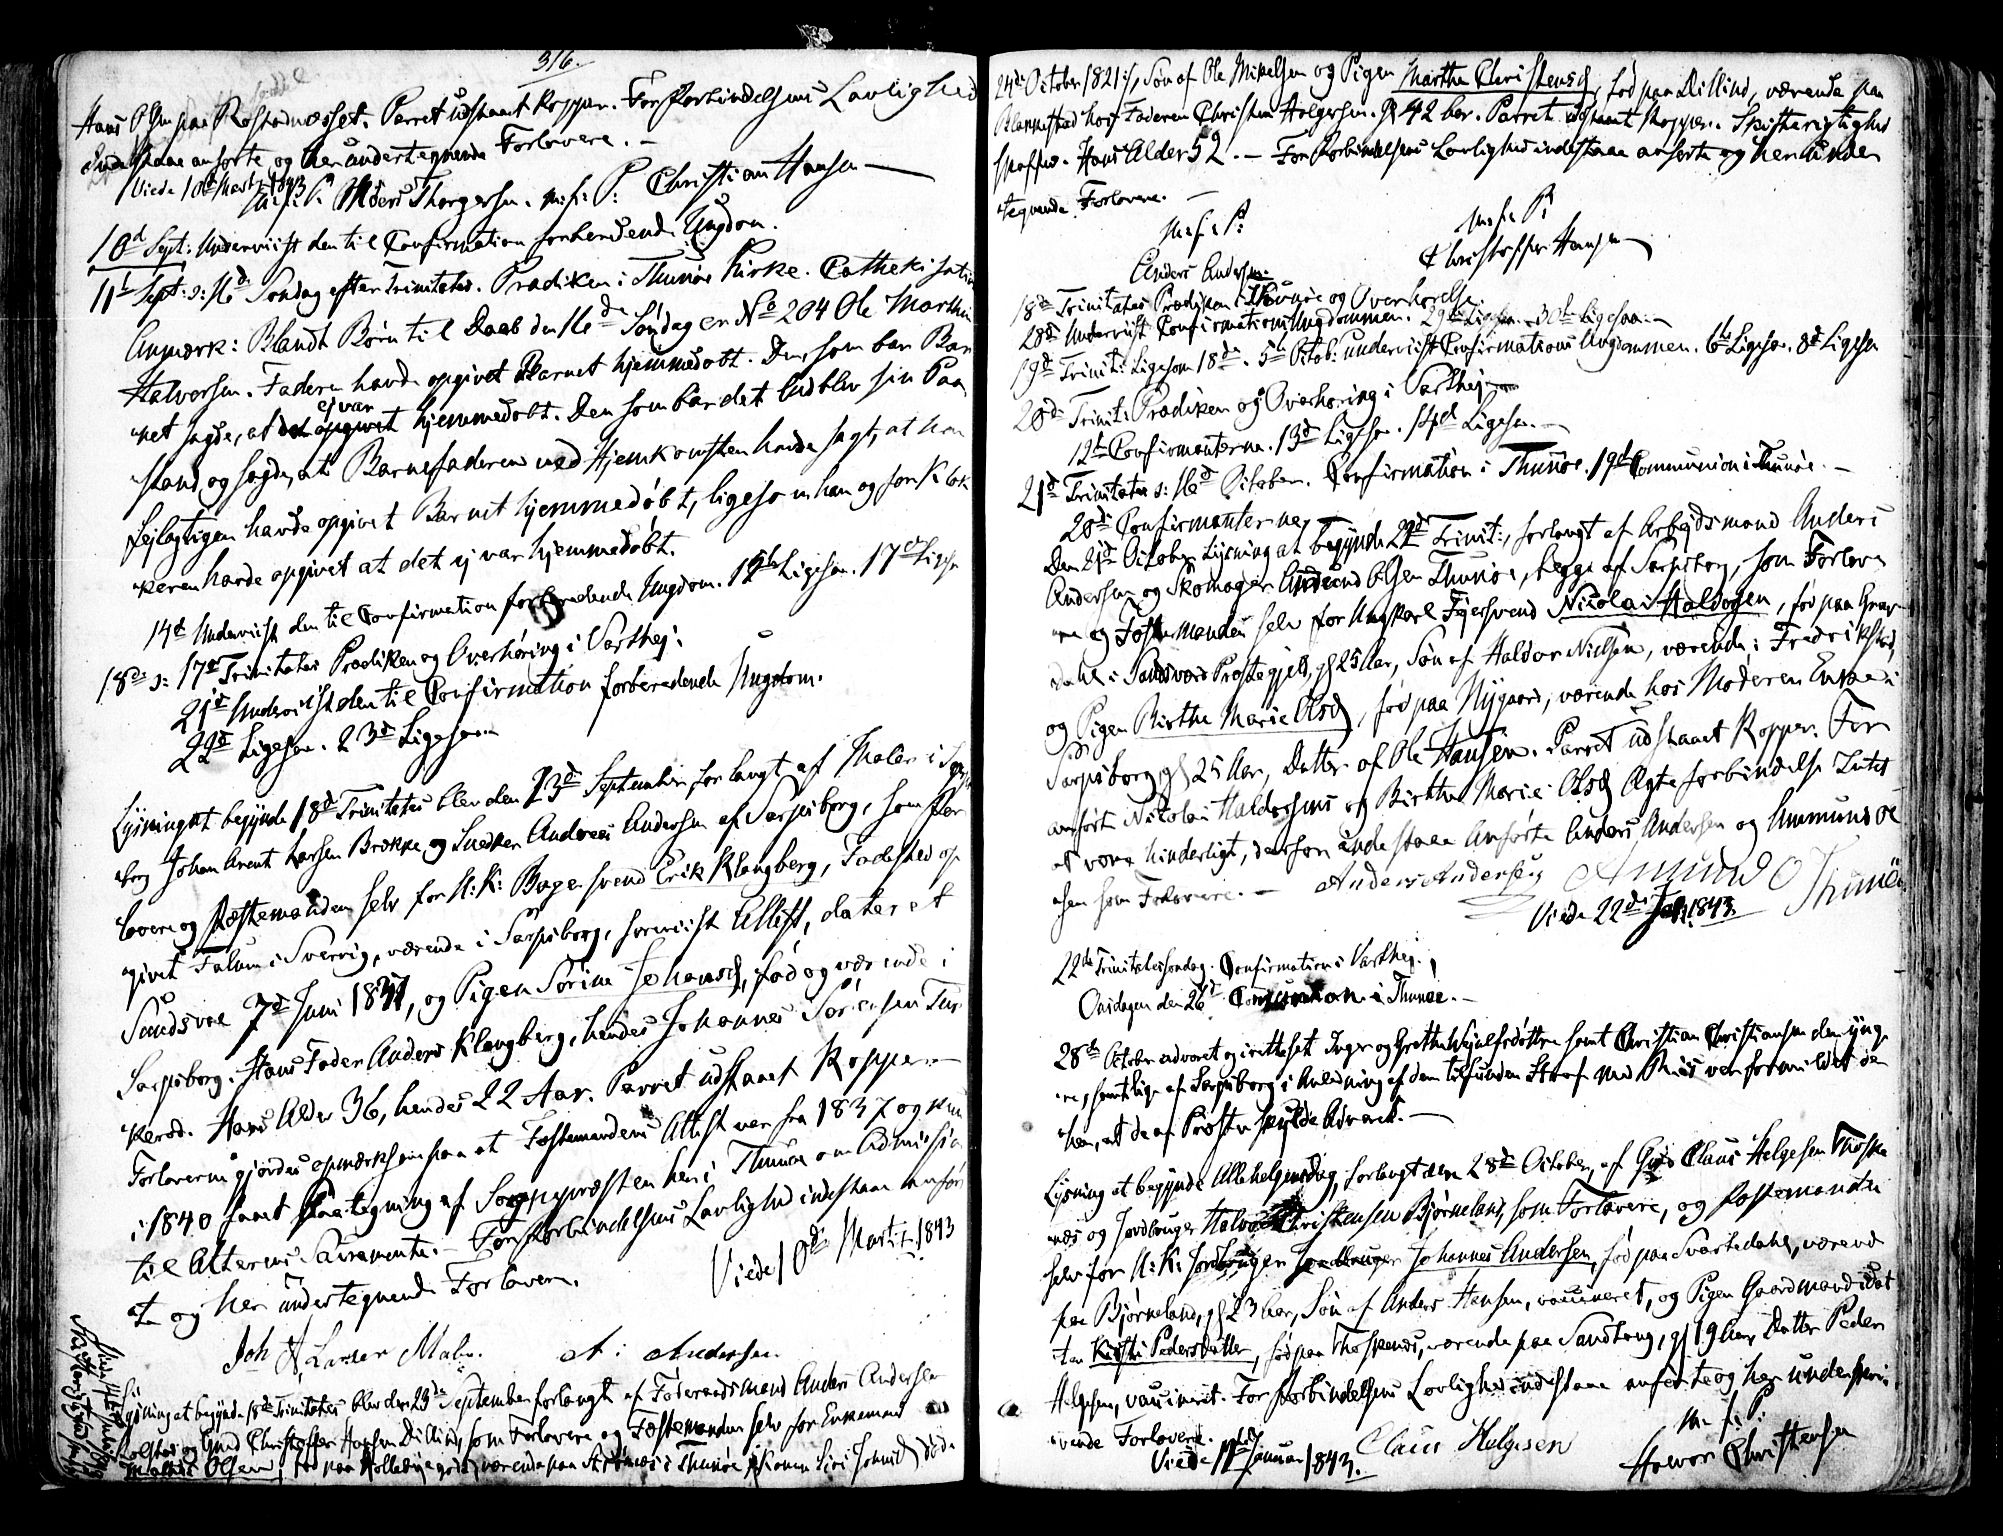 316.
Hans Olsen paa Rostadnæsset. Parret udstaaet Kopper. For Forbindelsens Lovlighed
indestaae anførte og her undertegnende Forlovere. –
Viede 10de Marts 1843
m. f. P. Anders Thorgersen. m. f. P. Christian Hansen
10d Sept: Underviist den til Confirmation forberedende Ungdom.
11t Sept: ɔ: 16de Søndag efter Trinitatis. Prædiken i Thunøe Kirke. Cathekisation
Anmærk: Blandt Børn til Daab den 16de Søndag er No 204 Ole Marthin
Halvorsen. Faderen havde opgivet Barnet hjemmedøbt. Den som bar Bar
net sagde, at det ej var hjemmedøbt. Den som bar det ved blev sin Paa
stand og sagde, at Barnefaderen ved Hjemkomsten havde sagt, at han
fejlagtigen havde opgivet Barnet hjemmedøbt, ligesom han og for Klok
keren havde opgivet at det ej var hjemmedøbt.
14d Underviist den til Confirmation forberedende Ungdom. 15de Ligesaa. 17d Ligesaa
18de ɔ: 17d Trinitatis Prædiken og Overhøring i Varthej:
21d Underviist den til Confirmation forberedende Ungdom.
22d Ligesaa. 23d Ligesaa
Lysning at begynde 18d Trinitatis blev den 23d September forlangt af Maler i Sarps
borg Johan Arent Larsen Brække og Snedker Andreas Andersen af Sarpsborg, som For
lovere og Fæstemanden selv for U: K: Bagersvend Erik Klangberg, Fødested op
givet Falun i Sverrig, værende i Sarpsborg, foreviist Attest, dateret
Sandsvær 7d Juni 1837, og Pigen Sørine Johansd, fød og værende i
Sarpsborg. Hans Fader Anders Klangberg, hendes Johannes Sørensen Tur
kerød. Hans Alder 36, hendes 22 Aar. Parret udstaaet Kopper. –
Forloverne gjordes opmærksom paa at Fæstemandens Attest var fra 1837 og kun
i 1840 samt Paategning af Sognepræsten her i Thunøe om Admission
til Alterens Sacramente. – For Forbindelsens Lovlighed indestaae anfør
te og her undertegnende Forlovere.
Viede 10de Marts 1843
Joh A. Larsen Maler. A: Andersen
Lysning at begynde 18de Trinitatis blev den 23de September forlangt af Føderaadsmand Anders Andersen
og Gmd Christoffer Hansen Dillind, som Forlovere og Fæstemanden selv for Enkemand
Mathis Olsen, fød paa værende paa i Thunøe (Konen Siri død
24de October 1821), Søn af Ole Mikelsen og Pigen Marthe Christensd, fød paa Dillind, værende paa
hos Faderen Christen Holgersen. gl 42 Aar. Parret udstaaet Kopper. Skifterigtighed
skaffes. Hans Alder 52. – For Forbindelsens Lovlighed indestaae anførte og her under
tegnende Forlovere. –
m. f. P: m. f. P:
Anders Andersen. Christoffer Hansen
18de Trinitatis Prædiken i Thunøe og Overhørelse
28de Underviist Confirmations Ungdommen. 29de Ligesaa. 30te Ligesaa. –
19d Trinit: Ligesom 18de. 5te Octob: underviist Confirmations Ungdommen. 6te Ligesaa. 8d Ligesaa
20de Trinit: Prædiken og Overhøring i Varthej
12te Confirmanterne. 13d Ligesaa. 14d Ligesaa. –
21d Trinitatis ɔ: 16d October. Confirmation i Thunøe. 19d Communion i Thunøe. –
20de Confirmanterne
Den 21d October Lysning at begynde 22d Trinit:, forlangt af Arbejdsmand Anders
Andersen og Skomager Amund Olsen Thunøe, begge af Sarpsborg, som Forlove
re og Fæstemanden selv for Ungkarl Fejersvend Nicolai Haldorsen, fød paa Grav
dahl i Sandsvær Præstegjeld, gl 25 Aar, Søn af Haldor Nielsen, værende i Fredrikstad,
og Pigen Birthe Marie Olsd, fød paa Nygaard, værende hos Moderen Enke i
Sarpsborg gl 25 Aar, Datter af Ole Hansen. Parret udstaaet Kopper. For
anførte Nicolai Haldorsens og Birthe Marie Olsd Ægteforbindelse Intet
at være hinderligt, derfor indestaae anførte Anders Andersen og Ammund Ol
sen som Forlovere. – Anders Andersen Amund O Thunøe
Viede 22de Jan 1843.
22de Trinitatissøndag. Confirmation i Varthej.
Onsdagen den 26d Communion i Thunøe. –
28de October advaret og irettesat Inger og Grethe samt Christian Christiansen den yng
re, samtlige af Sarpsborg i Anledning af den tilfunden Straf med Riis var formildet der
hen, at de af Præsten skulde advares. –
Lysning at begynde Allehelgensdag, forlangt den 28de October, af Gmd Claus Helgesen Thospe
næs og Jordbruger Halvor Christensen Bjørneland, som Forlovere, og Fæstemanden
selv for U: K: Jordbruger Johannes Andersen, fød paa Svartedahl, værend
paa Bjørneland, gl 23 Aar, Søn af Anders Hansen, vaccineret, og Pigen Gaardmandsdat
ter Kirsti Pedersdatter, fød paa Thospenæs, værende paa Sandtang, gl 19 Aar, Datter Peder
Helgesen, vaccineret. For Forbindelsens Lovlighed indestaae anførte og her underskri
vende Forlovere.
Viede 11te Januar 1843. Claus Helgesen m. f. P: Halvor Christensen